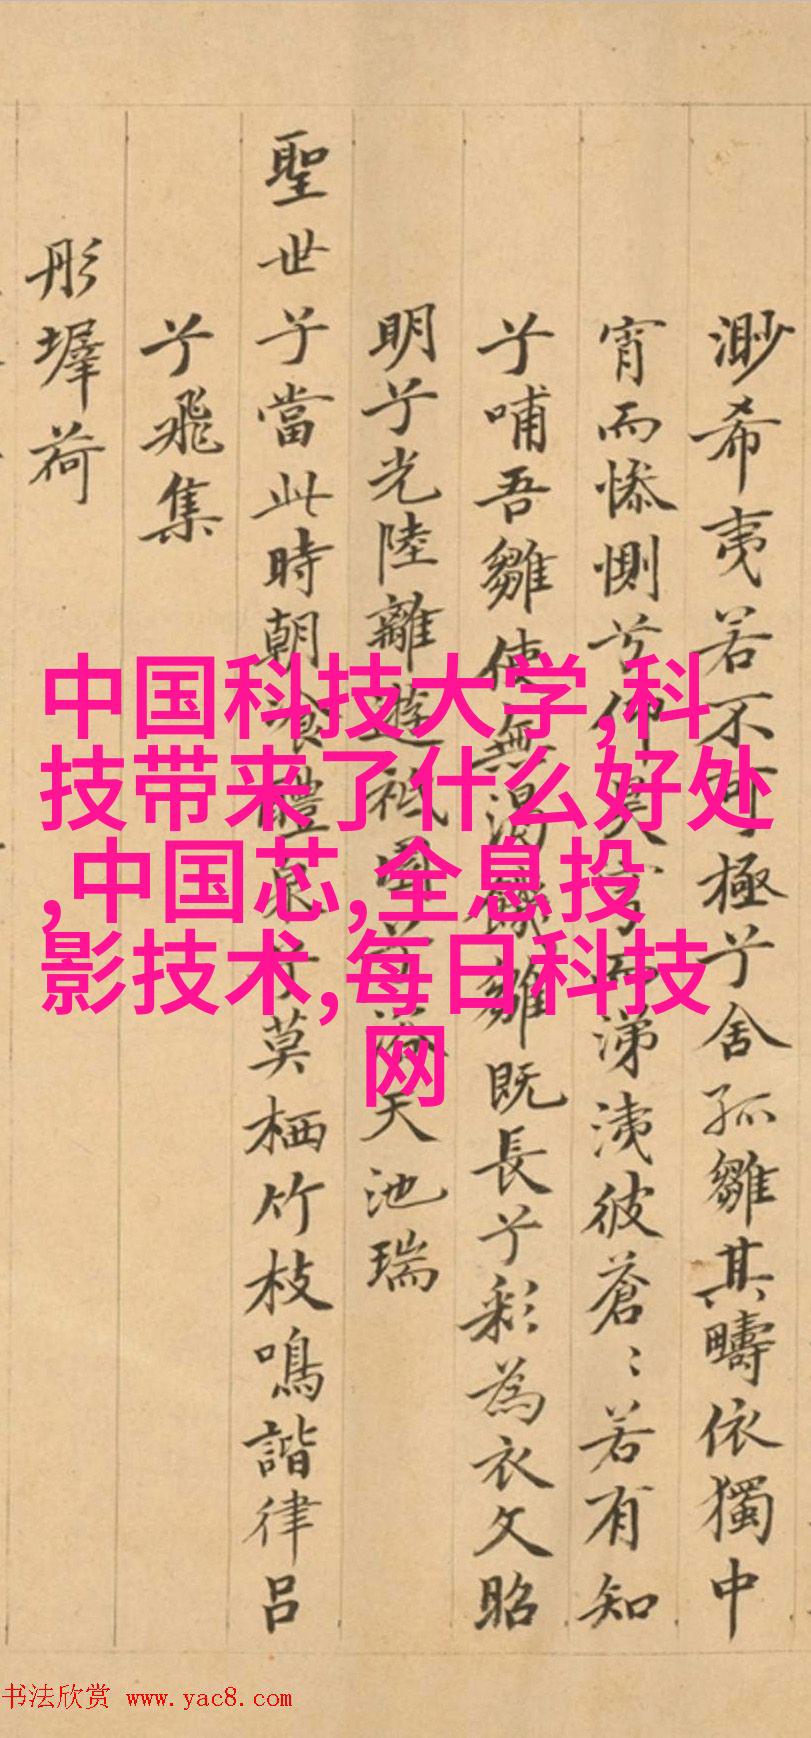 渺希夷若不可極兮舍孤雛其疇依獨中
宵而慘惻兮仰昊穹而涕洟彼蒼〻若有知
兮哺吾雛使無渴饑雛既長兮彩為衣文昭
明兮光陸離遊祇園兮浴天池瑞
聖世兮當此時朝飡醴泉兮莫栖竹枝鳴諧律呂
兮飛集
彤墀荷
中国科技大学,科
技带来了什么好处
,中国芯,全息投
影技术,每日科技
网
书法欣赏 www.yac8.com